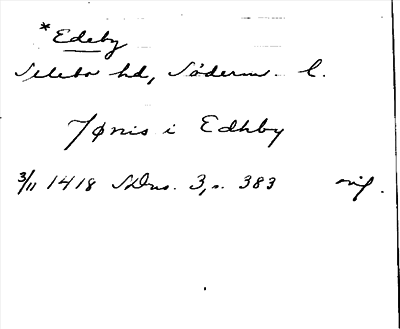 *Edeby
Selebo hd, Söderm. l.
Jønis i Edhby
3/11 1418 SDns. 3, s. 383 orig.